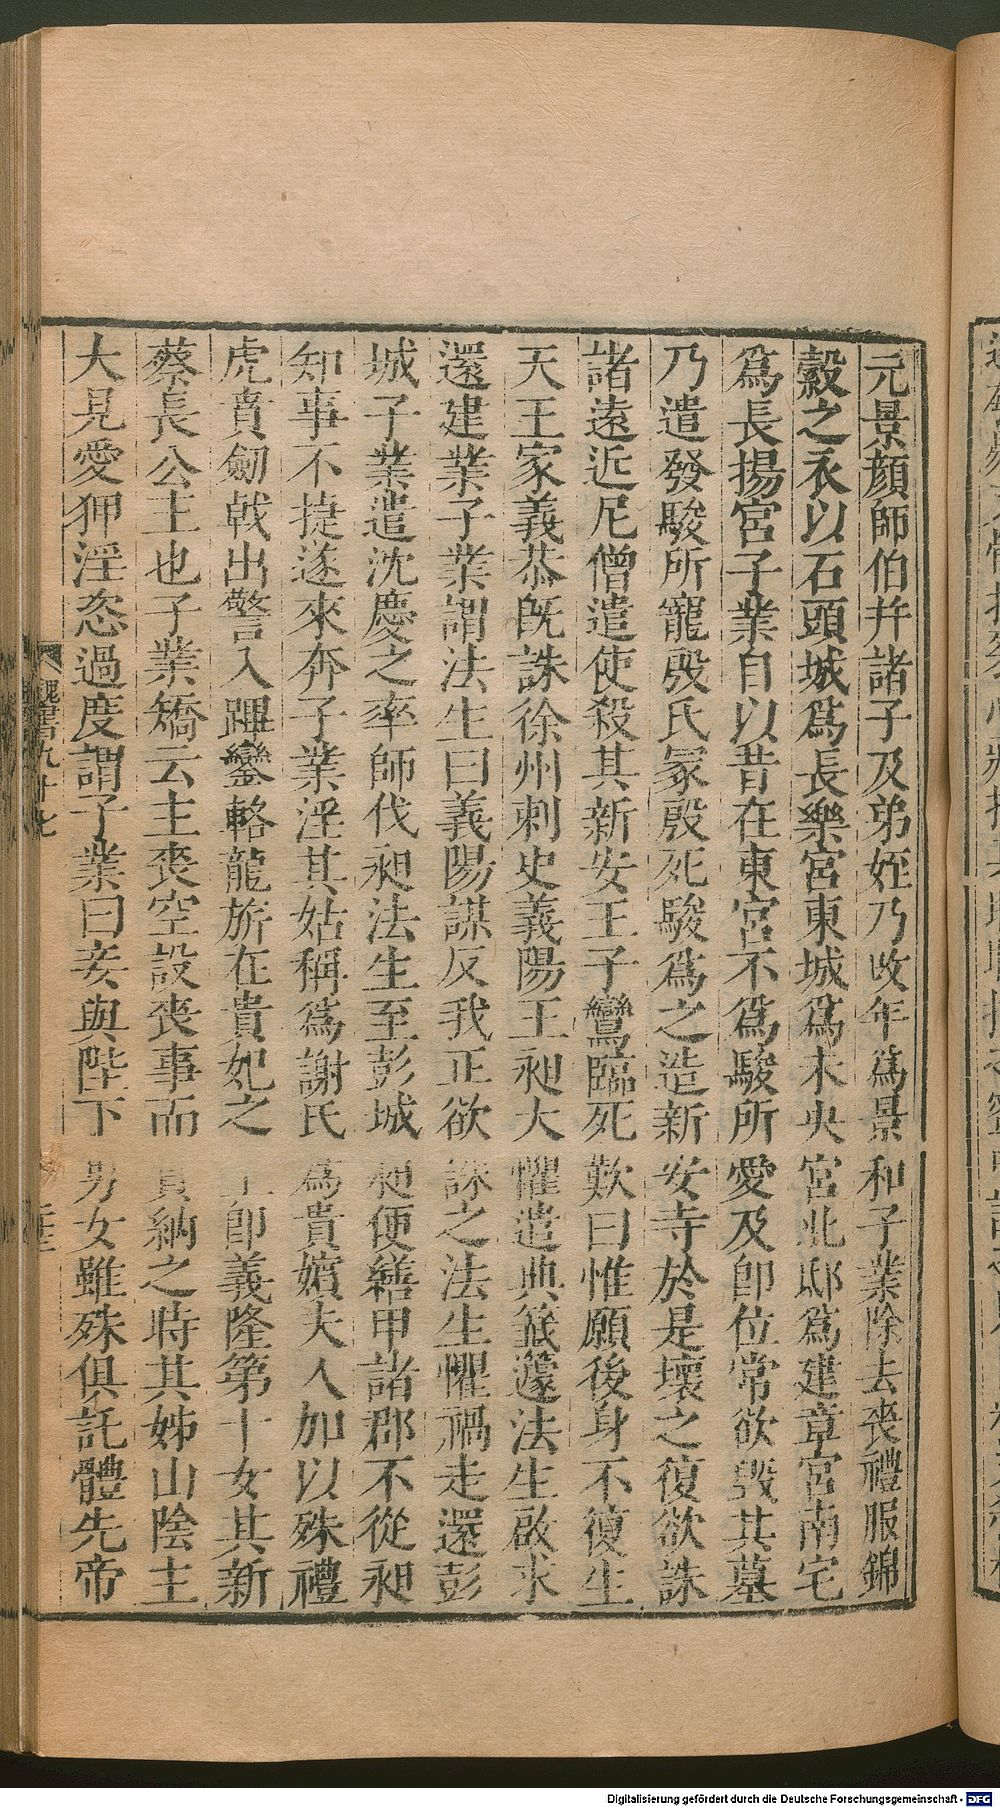 元景顏師伯幷諸子及弟姪乃改年爲景和子業除去喪禮服錦
縠之衣以石頭城爲長樂宮東城爲未央宮北邸爲建章宮南宅
爲長揚宮子業自以昔在東宮不爲駿所愛及卽位常欲毀其墓
乃遣發駿所寵殷氏冢殷死駿爲之造新安寺於是壞之復欲誅
諸遠近尼僧遣使殺其新安王子鸞臨死歎曰惟願後身不復生
天王家義恭旣誅徐州刺史義陽王昶大懼遣典籤蘧法生啟求
還建業子業謂法生曰義陽謀反我正欲誅之法生懼禍走還彭
城子業遣沈慶之率師伐昶法生至彭城昶便繕甲諸郡不從昶
知事不捷遂來奔子業淫其姑稱爲謝氏爲貴嬪夫人加以殊禮
虎賁劒戟出警入蹕鑾輅龍旂在貴妃之上卽義隆第十女其新
蔡長公主也子業矯云主喪空設喪事而實納之時其姊山陰主
大見愛狎淫恣過度謂子業曰妾與陛下男女雖殊俱託體先帝
魏書九十七
Digitalisierung gefördert durch die Deutsche Forschungsgemeinschaft - DFG